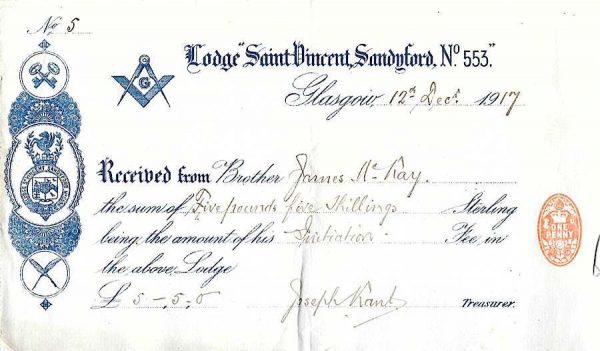 No 5
Lodge "Saint Vincent, Sandyford, No. 553."
G
Glasgow 12th Decr 1917
Received from Brother James Mc Kay.
the sum of Five pounds five Shillings Sterling
being the amount of his Initiation Fee in
the above Lodge
£ 5-,5,-0 Joseph Kant Treasurer.
ONE
PENNY